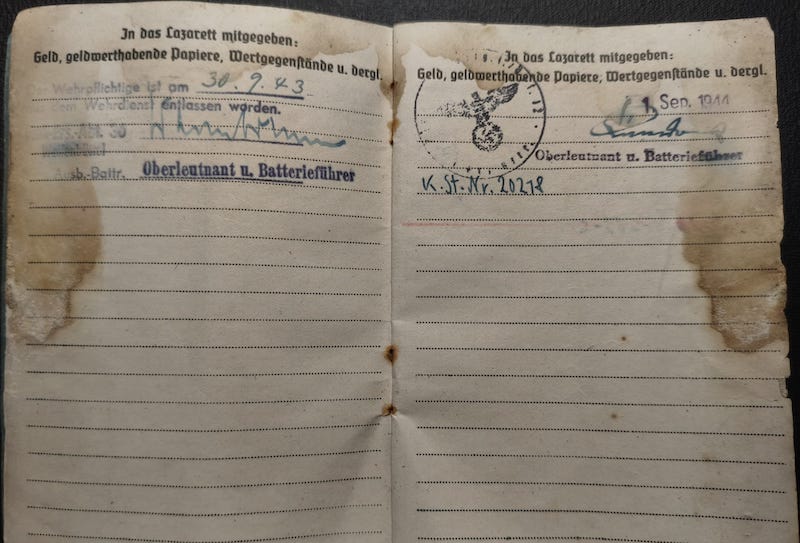 In das Lazarett mitgegeben:
Geld, geldwerthabende Papiere, Wertgegenstände u. dergl.
Der Wehrpflichtige ist am 30.9.43
dem Wehrdienst entlassen worden.
Abt. 30
Ausb.-Battr. Oberleutnant u. Batterieführer
In das Lazarett mitgegeben:
Geld, geldwerthabende Papiere, Wertgegenstände u. dergl.
1. Sep. 1944
Oberleutnant u. Batterieführer
K.St.Nr. 20218